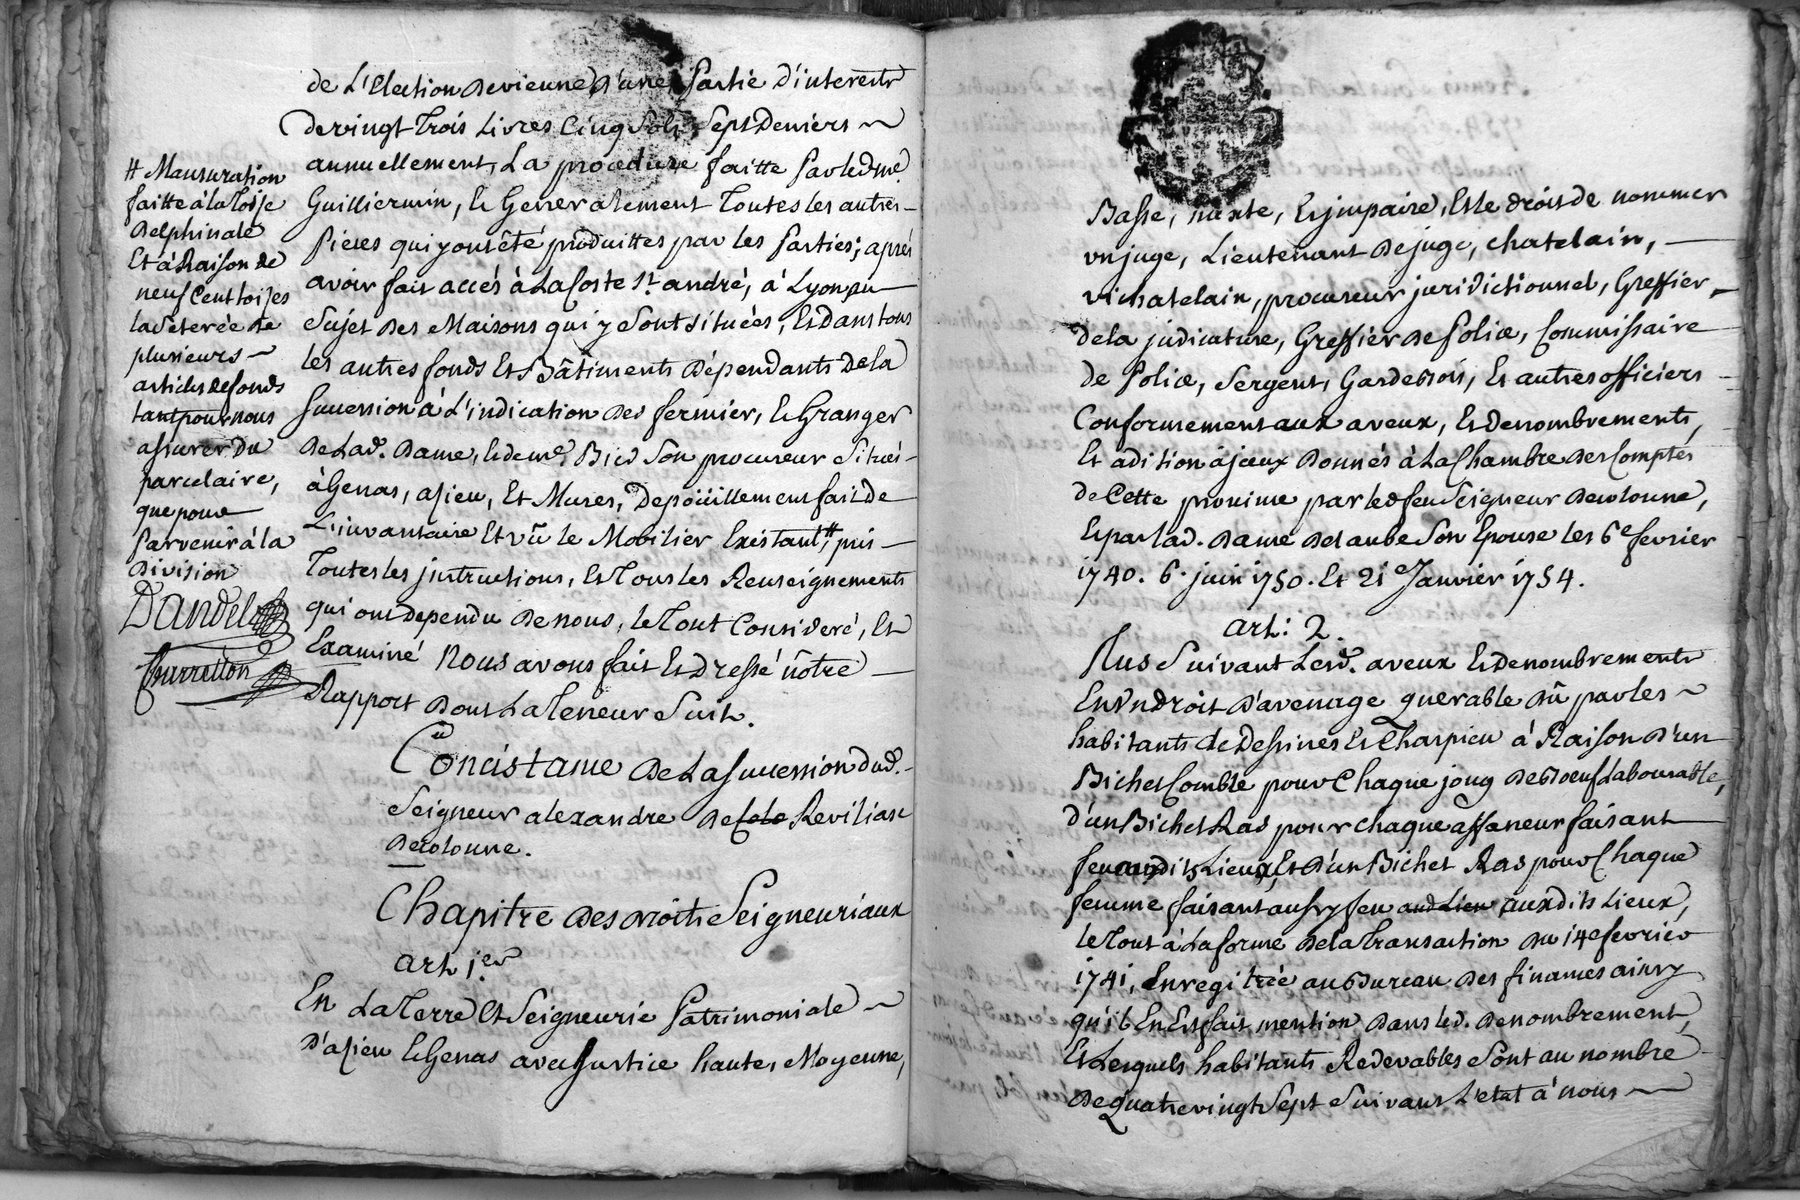 de L'Election de vienne d'une Partie d'interests
de vingt Trois Livres Cinq Sols Sept Deniers ~
annuellement, La procedure faitte Par led. me
Guilliermin, et Generalement Toutes les autres
Pieces qui y ont été produittes par les Parties; après
avoir fait accés à La Coste St. andré, à Lyon au
Sujet des Maisons qui y Sont situées, Et Dans tous
les autres fonds Et Bâtiments Dépendants de la
Succession à L'indication des fermier, et Granger
de Lad. Dame, et de me. Bied Son procureur Situés
à Genas, azieu, Et Mures, Depoüillement fait de
L'invantaire Et vû le Mobilier Existant, # pris
Toutes les jnstructions, Et Tous les Renseignements
qui ont dependu de nous, le Tout Consideré, Et
Examiné Nous avons fait Et Dressé nôtre
Rapport Dont La Teneur Suit.
# Mansuration
faitte à la Toise
Delphinale
Et à Raison de
neuf Cent toises
la Seterée de
plusieurs ~
articles de fonds
tant pour nous
assurer Du
parcelaire,
que pour
Parvenir à la
Division
Dandel
Churretton
Concistance de La Succession dud.
Seigneur alexandre de Reviliasc
de colonne.
Chapitre des droits Seigneuriaux
art. jer
En La Terre et Seigneurie Patrimoniale ~
D'azieu et Genas avec Justice haute, Moyenne,
Basse, mixte, Et jmpaire, Et le droit de nommer
vn juge, Lieutenant de juge, chatelain,
vichatelain, procureur juridictionnel, Greffier
de la judicature, Greffier de Police, Commissaire
de Police, Sergent, Garde bois, Et autres officiers
Conformement aux aveux, Et Denombrements,
Et adition à jceux Donnés à La Chambre des Comptes
de Cette province par led. feu Seigneur de colonne,
Et par lad. Dame Delaube Son Epouse les 6e fevrier
1740. 6. juin 1750. Et 21e Janvier 1754.
art: 2.
Plus Suivant Lesd. aveux Et Denombrements
En vn droit d'avenage querable dû par les ~
habitants de Dessines Et Charpieu à Raison d'un
Bichet Comble pour Chaque joug de Boeuf Labourable,
d'un Bichet Ras pour chaque affaneur faisant
feu auxdits Lieux, Et d'un Bichet Ras pour Chaque
femme faisant aussy feu aud Lieu auxdits Lieux,
le Tout à La forme de la Transaction du 14e fevrier
1741, Enregitrée au Bureau des finances ainsy
qu'il En Est fait mention Dans led. denombrement,
Et Lesquels habitants Redevables Sont au nombre
de quatre vingt Sept Suivant L'etat à nous ~